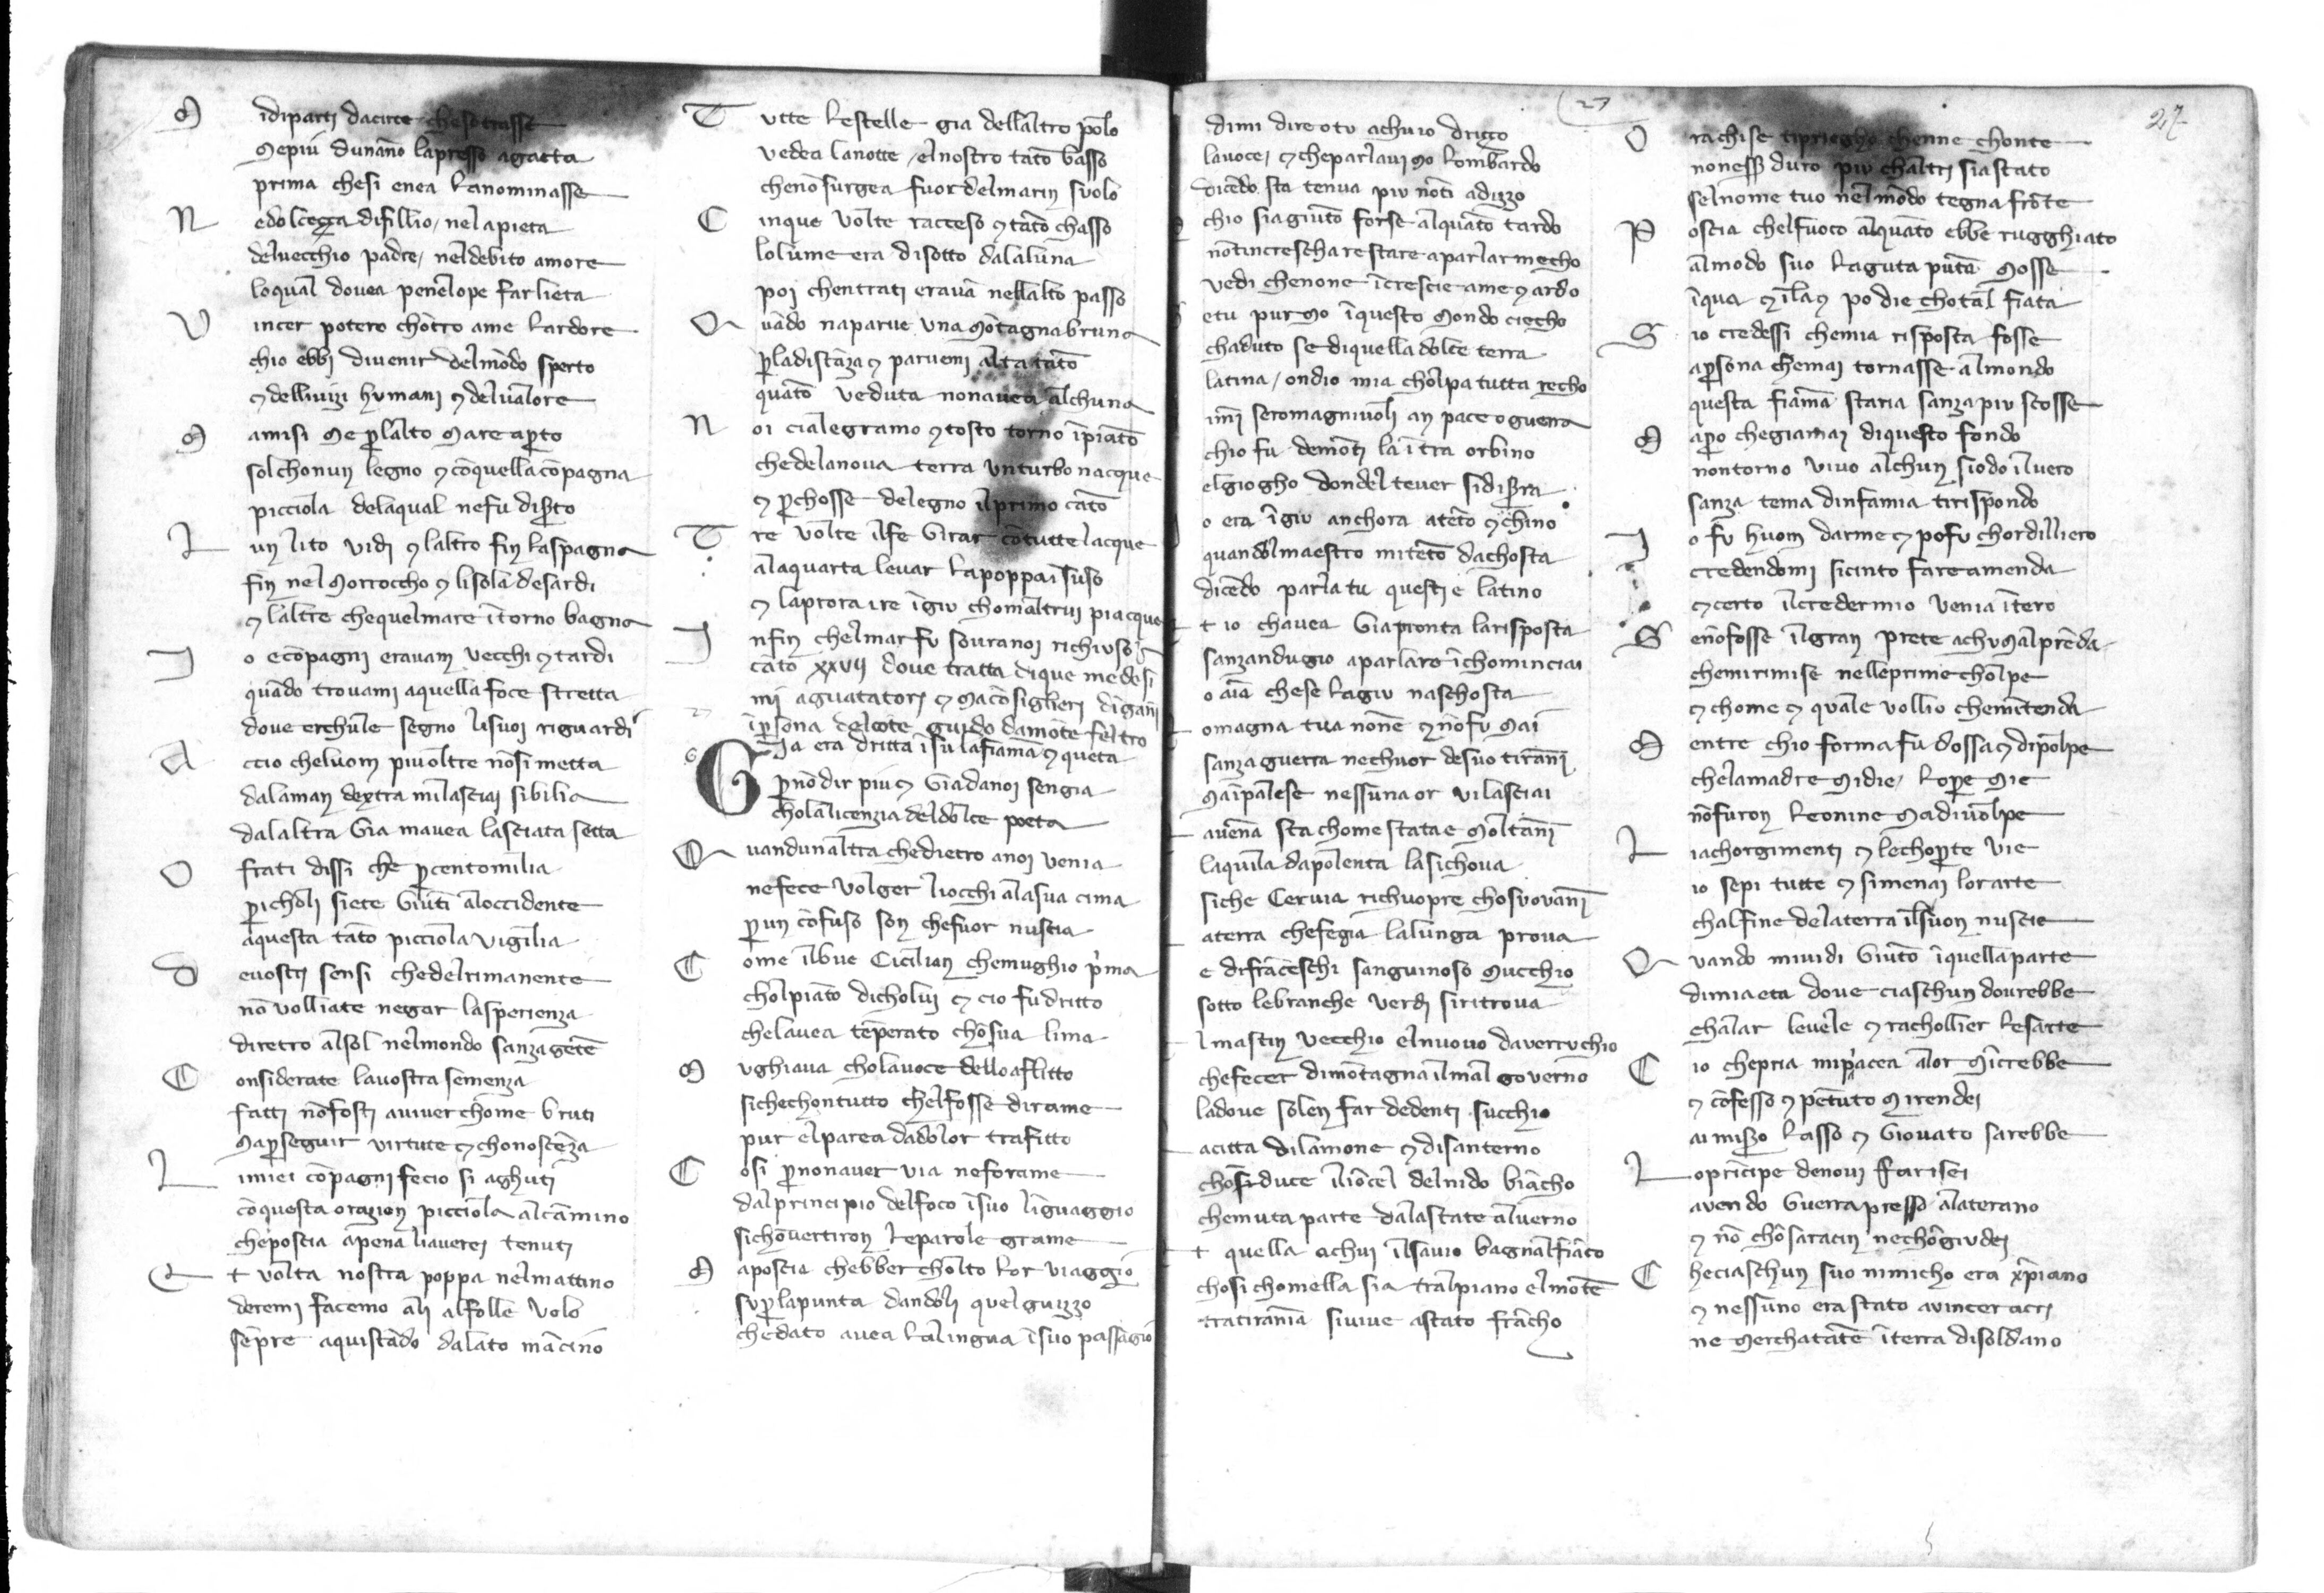 M idiparti dacirce chesotrasse
Mepiu dunāno lapresso agaeta
prima chesi enea lanominasse
N edolcezza difillio, nelapieta
deluecchio padre, neldebito amore
loqual douea penelope farlieta
V incer potero chōtro ame lardore
chio ebbi diuenir delmōdo sperto
⁊ delliuizi humani ⁊ deluālore
M amisi Me p̲lalto Mare ap̲to
sol chonun legno ⁊ cōquella cōpagna
picciola delaqual nefu dis̲to
L un lito vidi ⁊ laltro fin laspagna
fin nel Morroccho ⁊ lisola desardi
⁊ laltre chequelmare ītorno bagna
I o ecōpagni erauam vecchi ⁊ tardi
quādo trouami aquella foce stretta
doue erchule segno lisuoi riguardi
A ccio cheluom piuoltre nōsi metta
dalaman dextra milasciai sibilia
dalaltra Gia mauea lasciata setta
O frati dissi che p̲centomilia
p̲icholi siete Giūti aloccidente
aquesta tāto picciola vigilia
D euostri sensi chedelrimanente
nō volliate negar lasperienza
diretro alsol nelmondo sanzagētē
C onsiderate lauostra semenza
fatti nōfosti auiuer chome bruti
Map̲seguir virtute ⁊ chonoscēza
L imiei cōpagni fecio si aghuti
cōquesta orazion picciola alcāmino
cheposcia apena liauerei tenuti
E t volta nostra poppa nelmattino
deremi facemo ali alfolle volo
sēpre aquistādo dalato mācino
T utte lestelle gia dellaltro polo
vedea lanotte, elnostro tāto basso
chenōsurgea fuor delmarin suolo
C inque volte racceso ⁊ tāto chasso
lolume era disotto dalaluna
poi chentrati erauā nellalto passo
Q uādo naparue una Mōtagnabruna
p̲ladistāza ⁊ paruemi alta tāto
quāto veduta nonauea alchuna
N oi cialegramo ⁊ tosto torno īpiāto
chedelanoua terra unturbo nacque
⁊ p̲chosse delegno ilprimo cāto
T re volte ilfe Girar cōtutte lacque
alaquarta leuar lapoppa ī suso
⁊ laprora ire īgiu chomaltrui piacque
I nfin chelmar fu souranoi richiuso
cāto xxvii doue tratta dique medesi
mi aguatatori ⁊ Macōsiglieri dīgāni
īp̲sona delcōte guido damōte feltro
G Ia era dritta īsu lafiāma ⁊ queta
p̲nōdir piu ⁊ Giadanoi sengia
cholalicenzia deldolce poeta
Q uandunaltra chedietro anoi venia
nefece volger liocchi alasua cima
p̲ un cōfuso son chefuor nuscia
C ome ilbue Cicilian chemughio p̍ma
cholpiāto dicholui ⁊ cio fu dritto
chelauea tēperato chōsua lima
M ughiaua cholauoce delloaflitto
sichechontutto chelfosse dirame
pur elparea dadolor trafitto
C osi p̲nonauer via neforame
dalprincipio delfoco īsuo līguaggio
sichōuertiron leparole grame
M aposcia chebber cholto lor viaggio
sup̲lapunta dandoli quelguizzo
chedato auea lalingua īsuo passagio
dimi dire otu achuio drizzo
lauoce, ⁊ cheparlaui Mo lombardo
dicēdo sta tenua piu nōti adizzo
chio siagiūto forse alquāto tardo
nōtincrescha restare aparlarmecho
vedi chenone īcrescie ame ⁊ ardo
etu pur Mo īquesto Mondo ciecho
chaduto se diquella dolce terra
latina, ondio mia cholpa tutta recho
imi seromagniuoli an pace o guerra
chio fu demōti la ītra orbino
elgiogho dondel teuer sidis̲ra
o era īgiu anchora atēto ⁊ chino
quandolmaestro mitētō dachosta
dicēdo parla tu questi e latino
t io chauea Giapronta larisposta
sanzandugio aparlare īchominciai
o aīa chese lagiu naschosta
omagna tua nonē ⁊ nōfu Mai
sanza guerra nechuor desuo tirāni
Maīpalese nessuna or vilasciai
auēna sta chome statae Moltāni
laquila dapolenta lasichoua
siche Ceruia richuopre chosuouāni
aterra chefegia lalunga proua
e difrāceschi sanguinoso Mucchio
sotto lebranche verdi siritroua
lmastin vecchio elnuouo dauerruchio
chefecer dimōtagna ilmal gouerno
ladoue solen far dedenti succhio
acitta dilamone ⁊ disanterno
chōduce iliōcel delnido biācho
chemuta parte dalastate aluerno
t quella achui ilsauio bagnalfiāco
chosi chomella sia tralpiano elmōtē
tratirānia siuiue astato frācho
O rachise tipriegho chenne chonte
nonesser duro piu chaltri siastato
selnome tuo nelmōdo tegna frōte
P oscia chelfuoco alquāto ebbe rugghiato
almodo suo laguta pūta Mosse
īqua ⁊ īla ⁊ po die chotal fiata
S io credessi chemia risposta fosse
ap̲sona chemai tornasse almondo
questa fiāma staria sanza piu scosse
M ap̲o chegiamai diquesto fondo
nontorno viuo alchun siodo iluero
sanza tema dinfamia tirispondo
I o fu huom darme ⁊ pofu chordilliero
credendomi sicinto fare amenda
⁊ certo ilcredermio venia ītero
S enōfosse ilgran prete achuMalprēda
chemirimise nelleprime cholpe
⁊ chome ⁊ quale vollio chemītenda
M entre chio forma fu dossa ⁊ dipolpe
chelamadre Midie, lop̲e Mie
nōfuron leonine Madiuolpe
L iachorgimenti ⁊ lechop̲te vie
io sepi tutte ⁊ simenai lorarte
chalfine delaterra ilsuon nuscie
Q vando miuidi Giūto īquellaparte
dimiaeta doue ciaschun dourebbe
chalar leuele ⁊ rachollier lesarte
C io chepria mip̍acea alor Mīcrebbe
⁊ cōfesso ⁊ pētuto Mirendei
ai mis̲o lasso ⁊ Giouato sarebbe
L oprīcipe denoui farisei
auendo Guerra presso alaterano
⁊ nō chōsaracin nechōgiudei
C heciaschun suo nimicho era xp̄iano
⁊ nessuno era stato auincer acri
ne Merchatāte īterra disoldano
27
27